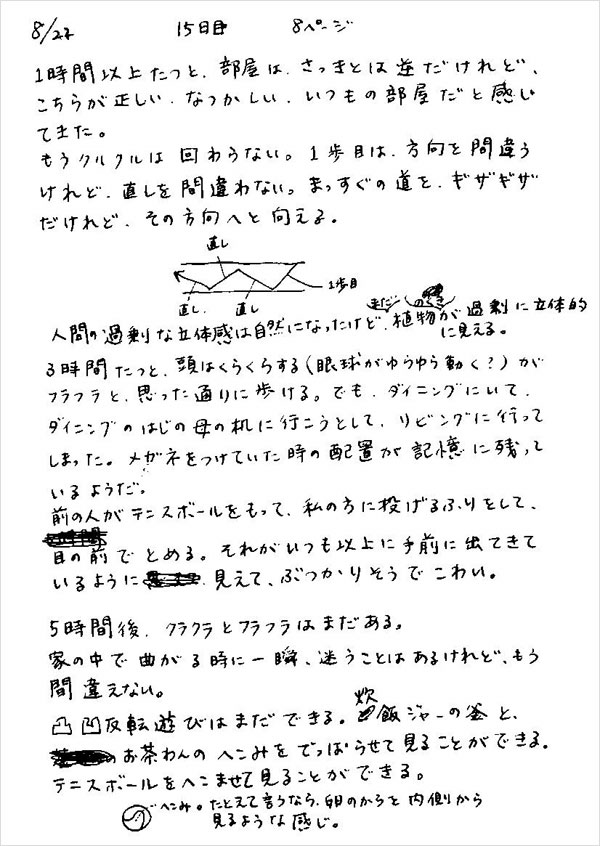 8/22 15日目 8ページ
1時間以上たつと、部屋は、さっきとは逆だけれど、
こちらが正しい、なつかしい、いつもの部屋だと感じ
てきた。
もうクルクルは回わらない。1歩目は、方向を間違う
けれど、直しを間違わない。まっすぐの道を、ギザギザ
だけれど、その方向へと向える。
直し
直し 直し 1歩目
人間の過剰な立体感は自然になったけど、まだ植物が過剰に立体的
に見える。
3時間たつと、頭はくらくらする(眼球がゆらゆら動く?)が
フラフラと、思った通りに歩ける。でも、ダイニングにいて、
ダイニングのはじの母の机に行こうとして、リビングに行って
しまった。メガネをつけていた時の配置が記憶に残って
いるようだ。
前の人がテニスボールをもって、私の方に投げるふりをして、
目の前でとめる。それがいつも以上に手前に出てきて
いるように見えて、ぶつかりそうでこわい。
5時間後、クラクラとフラフラはまだある。
家の中で曲がる時に一瞬、迷うことはあるけれど、もう
間違えない。
凸凹反転遊びはまだできる。炊飯ジャーの釜と、
のお茶わんのへこみをでっぱらせて見ることができる。
テニスボールをへこませて見ることができる。
へこみ。たとえて言うなら、卵のからを内側から
見るような感じ。